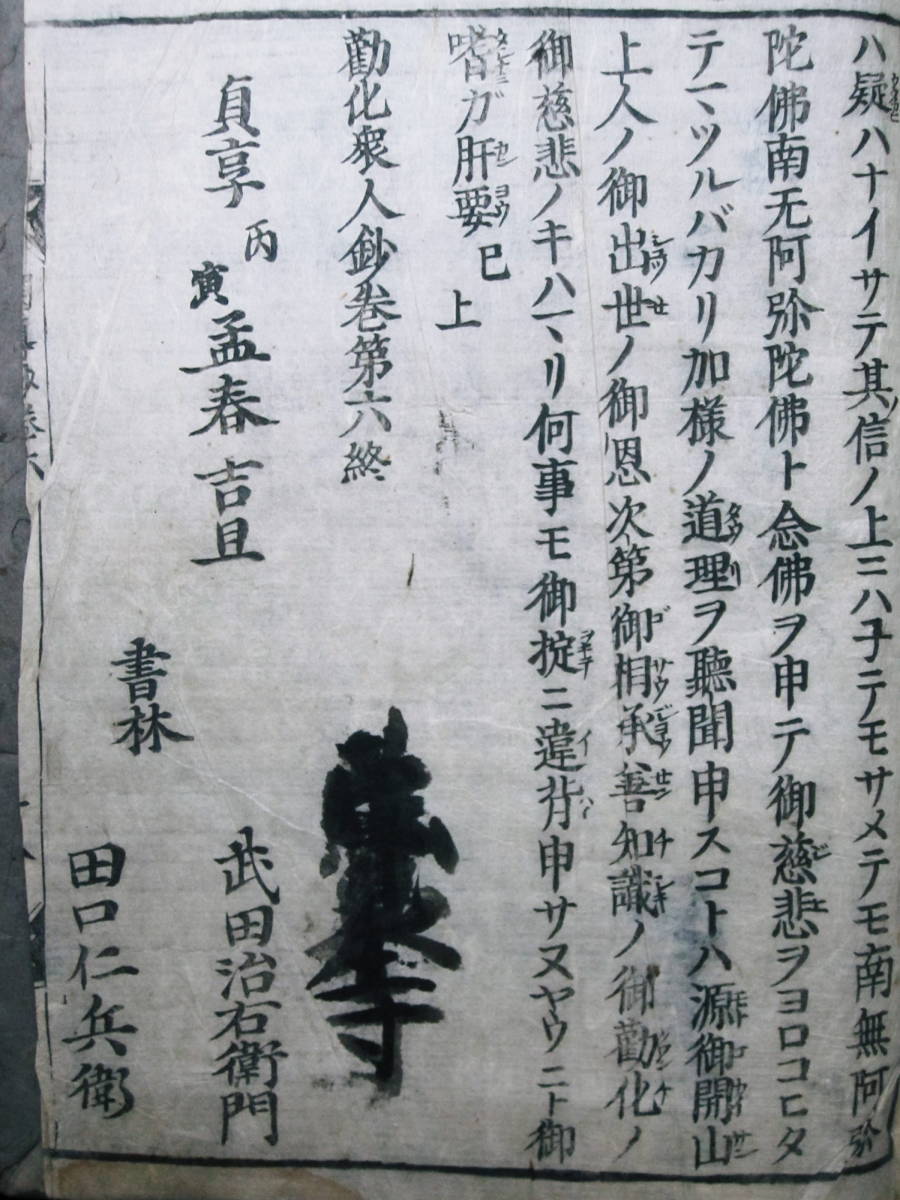 ハ疑ハナイサテ其信ノ上ニハ子テモサメテモ南無阿弥
陀佛南无阿弥陀佛ト念佛ヲ申テ御慈悲ヲヨロコヒタ
テマツルバカリ加様ノ道理ヲ聽聞申スコトハ源御開山
上人ノ御出世ノ御恩次第御相承善知識ノ御勸化ノ
御慈悲ノキハマリ何事モ御掟ニ違背申サヌヤウニト御
嗜ガ肝要已上
勸化衆人鈔卷第六終
貞享丙寅孟春吉旦
書林
武田治右衛門
田口仁兵衛